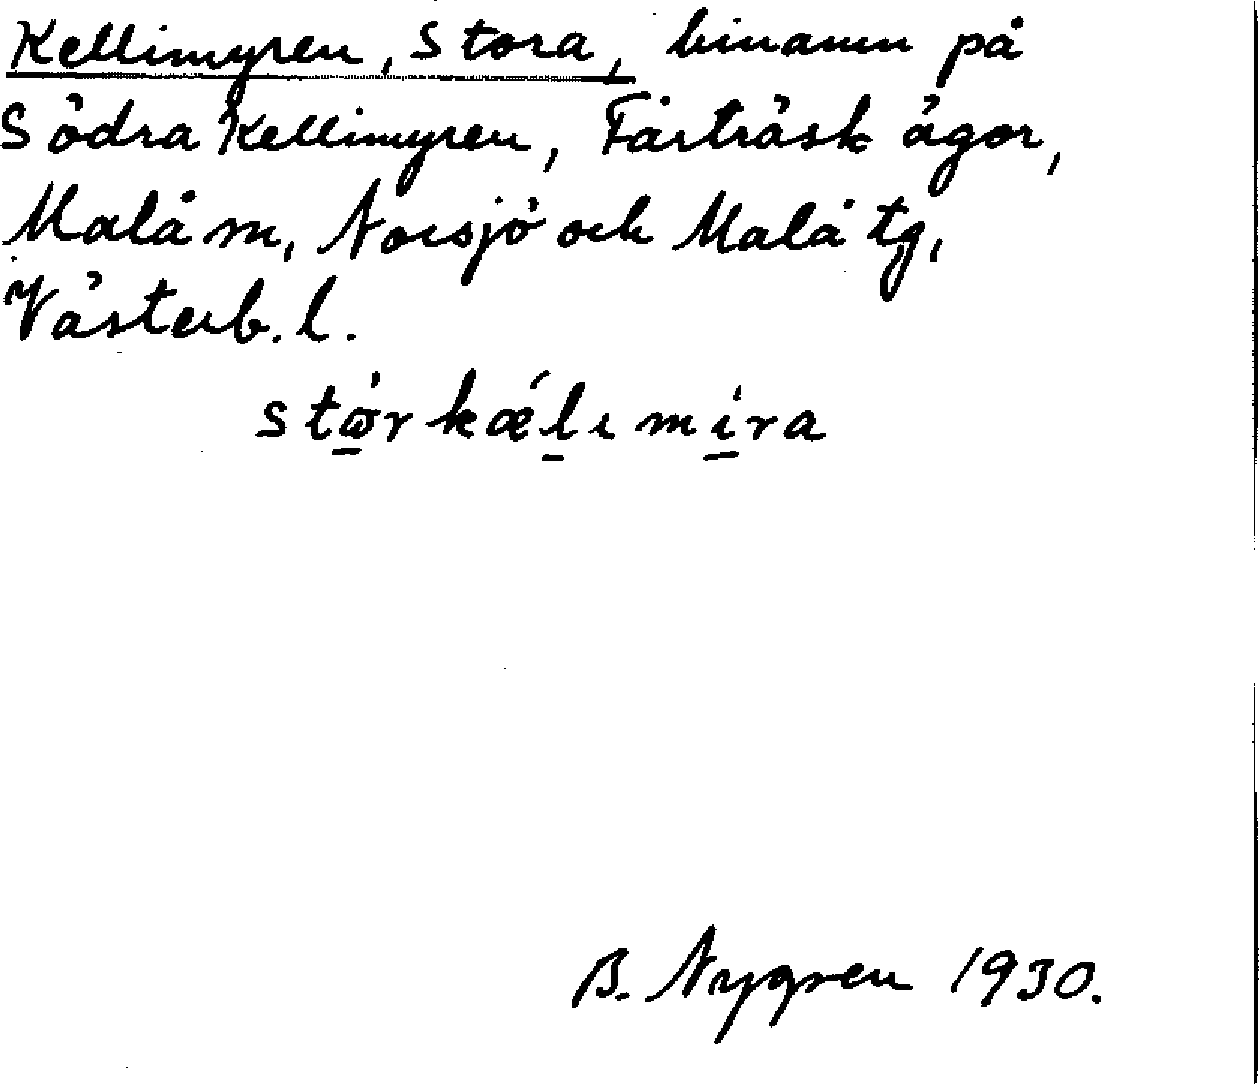 Kellimyren, Stora, binamn på
Södra Kellimyren, Fårträsk ägor,
Malå sn, Norsjö och Malå tg,
Västerb. l.
stǿrkǽlımíra
B. Nygren 1930.